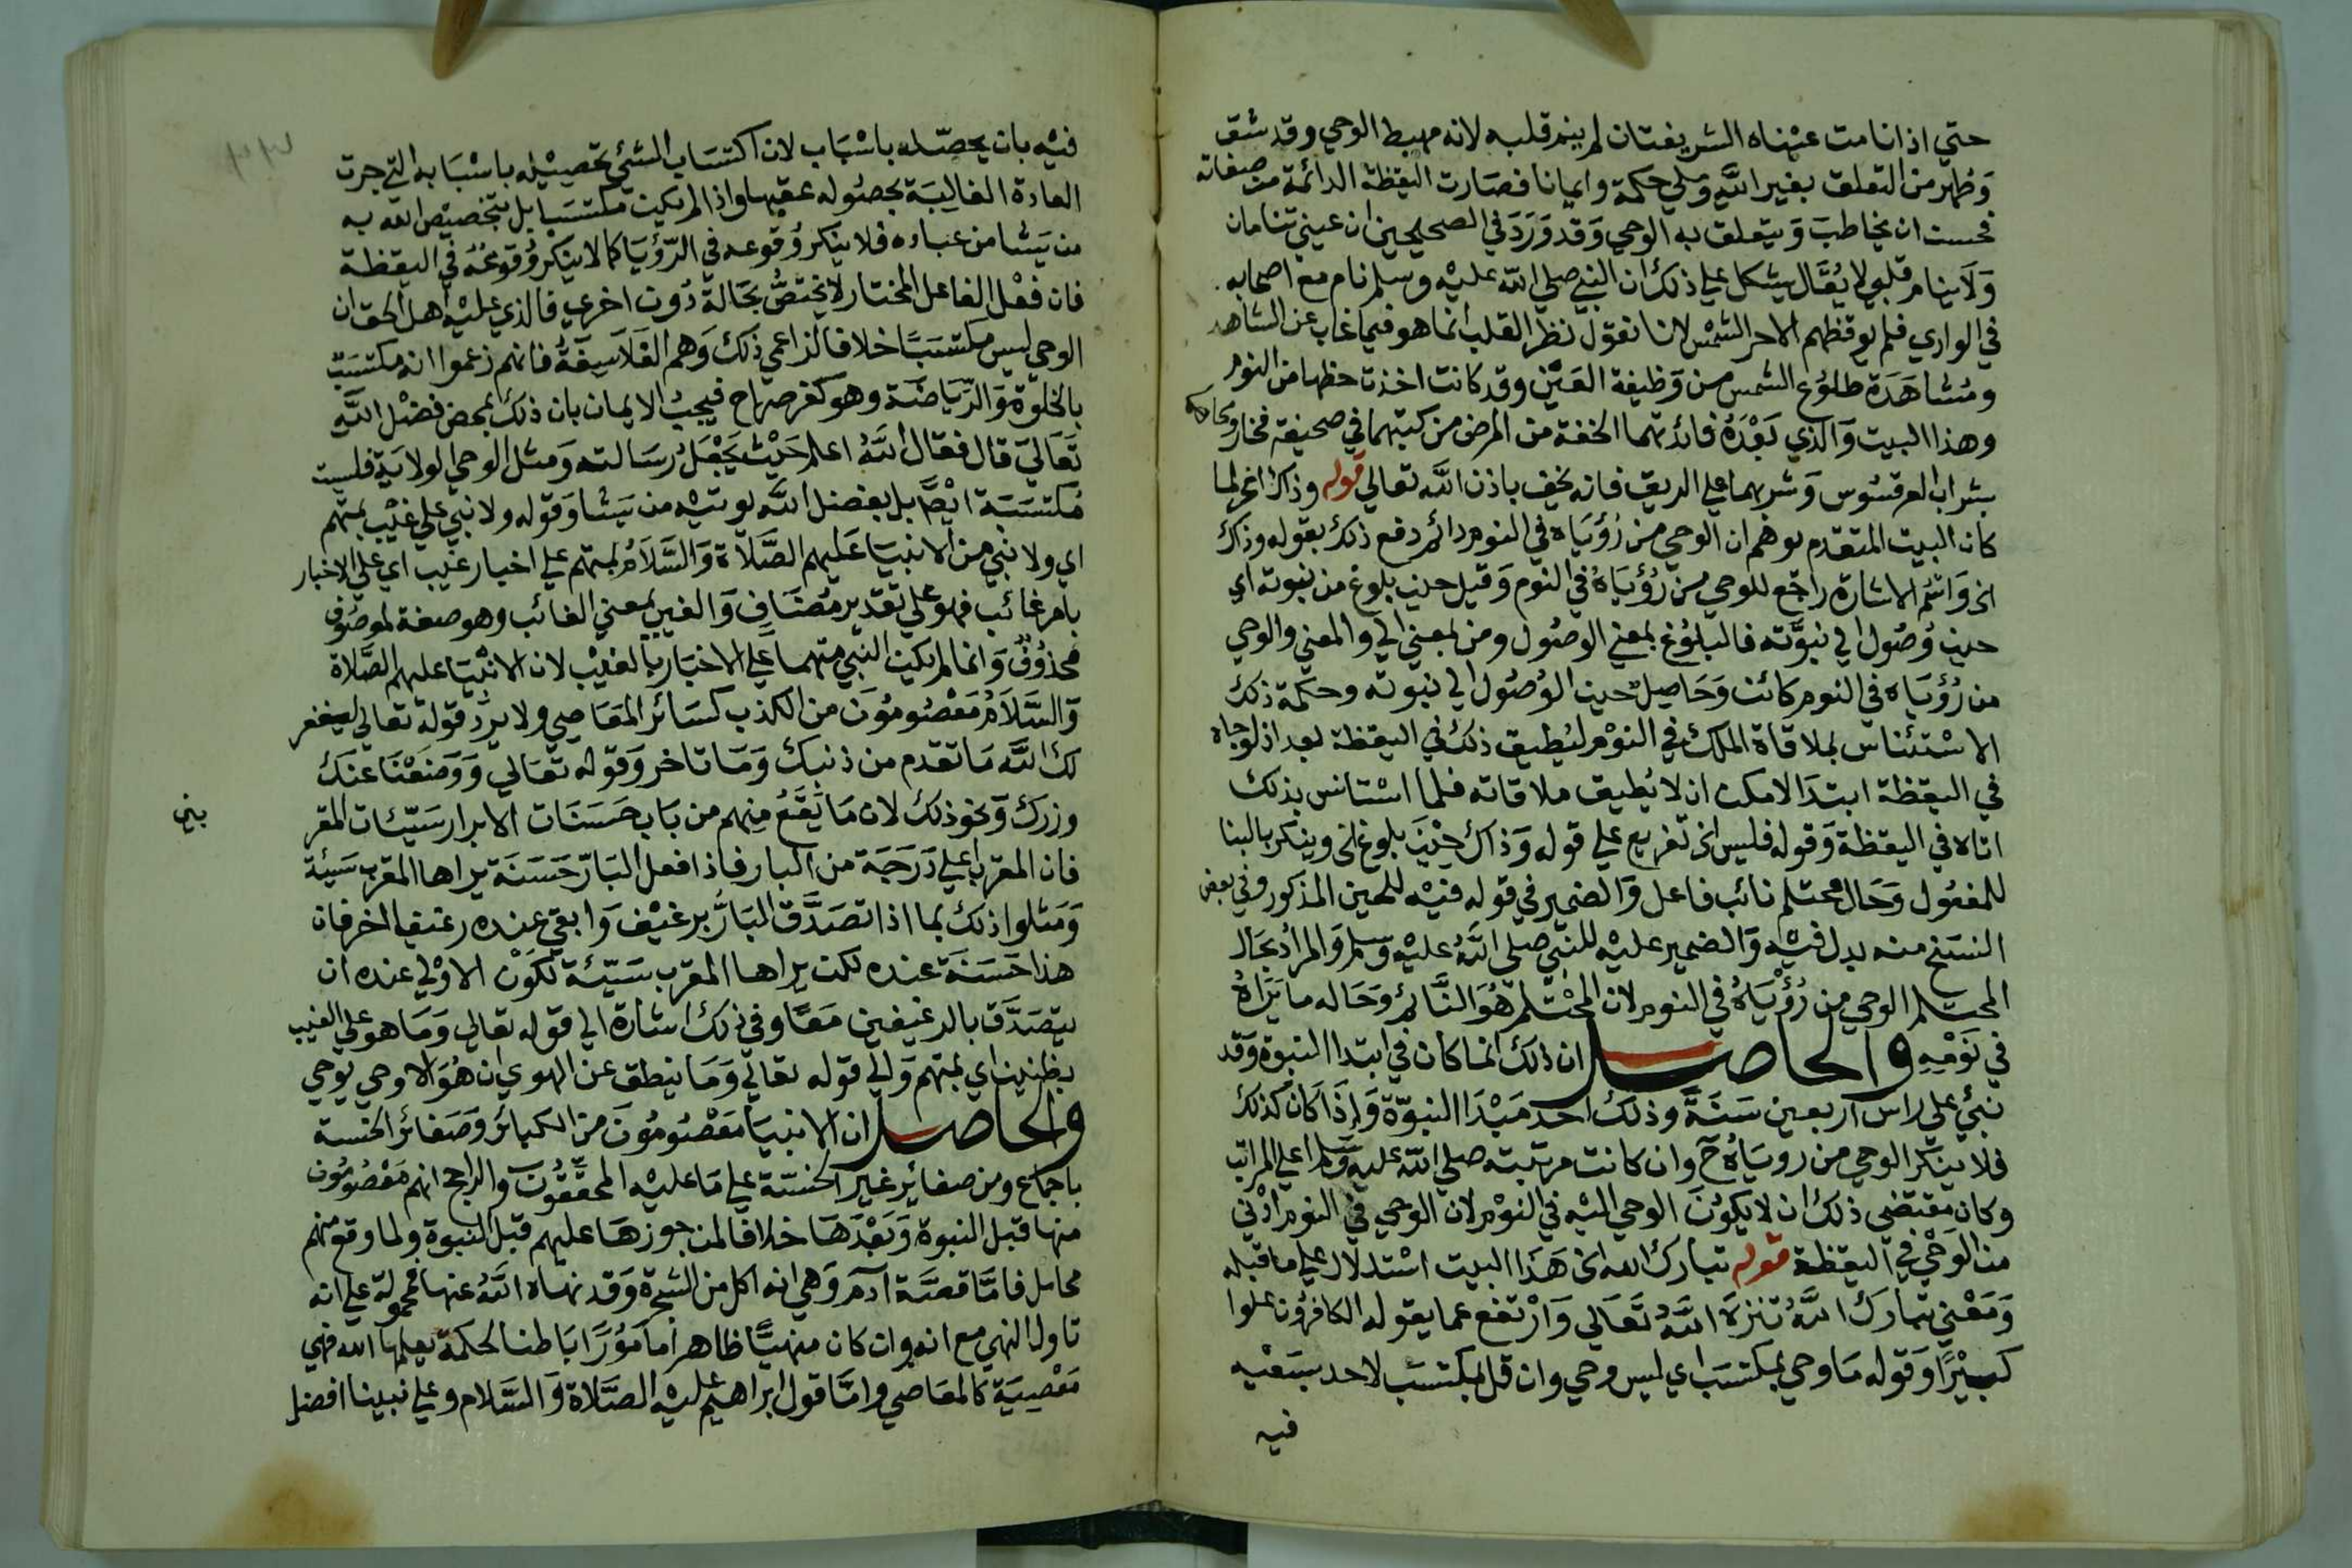 حتي اذا نامت عيناه الشريفتان لم ينم قلبه لانه مهبط الوحي وقد شق
وطهر من التعلق بغير الله وملي حكمة وايمانا فصارت اليقظة الدائمة من صفاته
فحسن ان يخاطب ويتعلق به الوحي وقد ورد في الصحيحين ان عيني تنامان
ولا ينام قلبي لا يقال يشكل علي ذلك ان النبي صلي الله عليه وسلم نام مع اصحابه
في الوادي فلم يوقظهم الا حر الشمس لانا نقول نظر القلب انما هو فيما غاب عن الشاهد
ومشاهدة طلوع الشمس من وظيفة العين وقد كانت اخذت حظها من النوم
وهذا البيت والذي بعده فائدتهما الخفة من المرض من كتبهما في صحيفة فخار ومحاه
بشراب العرقسوس وشربهما علي الريق فانه يخف باذن الله تعالي قوله وذاك الخ لما
كان البيت المتقدم يوهم ان الوحي من رؤياه في النوم دائم دفع ذلك بقوله وذاك
الخ واسم الاشارة راجع للوحي من رؤياه في النوم وقيل حين بلوغ من نبوته اي
حين وصول الي نبوته فالبلوغ بمعني الوصول ومن بمعني الي والمعني والوحي
من رؤياه في النوم كائن وحاصل حين الوصول الي نبوته وحكمة ذلك
الاستئناس بملاقاة الملك في النوم ليطيق ذلك في اليقظة بعد اذ لو جاه
في اليقظة ابتدا لامكن ان لا يطيق ملاقاته فلما استانس بذلك
اتاه في اليقظة وقوله فليس الخ تفريع علي قوله وذاك حين بلوغ الخ وينكر بالبنا
للمفعول وحال محتلم نائب فاعل والضمير في قوله فيه للحين المذكور وفي بعض
النسخ منه بدل فيه والضمير عليه للنبي صلي الله عليه وسلم والمراد بحال
المحتلم الوحي من رؤياه في النوم لان المحتلم هو النائم وحاله ما يراه
في نومه والحاصل ان ذلك انما كان في ابتدا النبوة وقد
نبئ علي راس اربعين سنة وذلك احد مبدا النبوة واذا كان كذلك
فلا ينكر الوحي من روياه ح وان كانت مرتبته صلي الله عليه وسلم اعلي المراتب
وكان مقتضي ذلك ان لا يكون الوحي اليه في النوم لان الوحي في النوم ادني
من الوحي في اليقظة قوله تبارك الله الخ هذا البيت استدلال علي ما قبله
ومعني تبارك الله تنزه الله تعالي وارتفع عما يقوله الكافرون علوا
كبيرا وقوله ما وحي بمكتسب اي ليس وحي وان قل بمكتسب لاحد بسعيه
فيه
فيه بان يحصله باسباب لان اكتساب الشئي تحصيله باسبابه التي جرت
العادة الغالبة بحصوله عقبها واذا لم يكن مكتسبا بل بتخصيص الله به
من يشا من عباده فلا ينكر وقوعه في الرؤيا كما لا ينكر وقوعه في اليقظة
فان فعل الفاعل المختار لا يختص بحالة دون اخري فالذي عليه اهل الحق ان
الوحي ليس مكتسبا خلافا لزاعمي ذلك وهم الفلاسفة فانهم زعموا انه مكتسب
بالخلوة والرياضة وهو كفر صراح فيجب الايمان بان ذلك بمحض فضل الله
تعالي قال فقال الله اعلم حيث يجعل رسالته ومثل الوحي الولاية فليست
مكتسبة ايضا بل بفضل الله يوتيه من يشا وقوله ولا نبي علي غيب بمتهم
اي ولا نبي من الانبيا عليهم الصلاة والسلام بمتهم علي اخبار غيب اي علي الاخبار
بامر غائب فهو علي تقدير مضاف والغيب بمعني الغائب وهو صفة لموصوف
محذوف وانما لم يكن النبي متهما علي الاخبار بالغيب لان الانبيا عليهم الصلاة
والسلام معصومون من الكذب كسائر المعاصي ولا يرد قوله تعالي ليغفر
لك الله ما تقدم من ذنبك وما تاخر وقوله تعالي ووضعنا عنك
وزرك ونحو ذلك لان ما يقع منهم من باب حسنات الابرار سيئات المقر
بين
فان المقرب اعلي درجة من البار فاذا فعل البار حسنة يراها المقرب سيئة
ومثلوا ذلك بما اذا تصدق البار برغيف وابقي عنده رغيفا اخر فان
هذا حسنة عنده لكن يراها المقرب سيئة لكون الاولي عنده ان
يتصدق بالرغيفين معا وفي ذلك اشارة الي قوله تعالي وما هو علي الغيب
بظنين اي بمتهم والي قوله تعالي وما ينطق عن الهوي ان هو الا وحي يوحي
والحاصل ان الانبيا معصومون من الكبائر وصغائر الخسة
باجماع ومن صغائر غير الخسة علي ما عليه المحققون والراجح انهم معصومون
منها قبل النبوة وبعدها خلافا لمن جوزها عليهم قبل النبوة ولما وقع منهم
محامل فاما قصة آدم وهي انه اكل من الشجرة وقد نهاه الله عنها فمحمولة علي انه
تاول النهي مع انه وان كان منهيا ظاهرا مامورا باطنا لحكمة يعلمها الله فهي
معصية كالمعاصي واما قول ابراهيم عليه الصلاة والسلام وعلي نبينا افضل